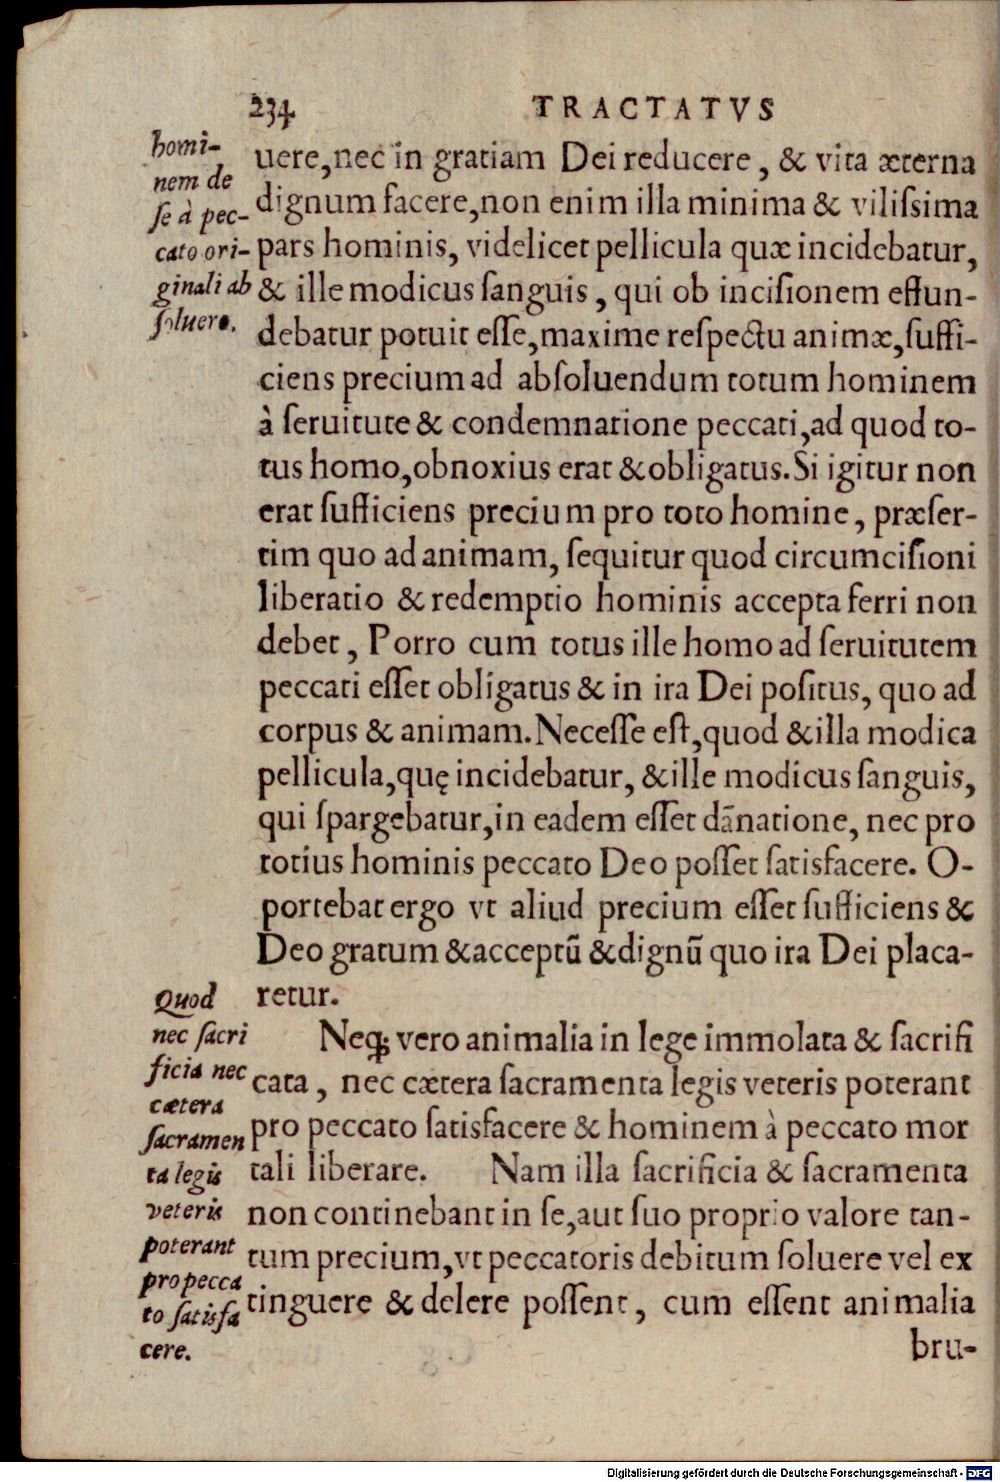 234 TRACTATVS
homi-
nem de
ſe à pec-
cato ori-
ginali ab
ſoluere.
uere, nec in gratiam Dei reducere, & vita æterna
dignum facere, non enim illa minima & viliſsima
pars hominis, videlicet pellicula quæ incidebatur,
& ille modicus ſanguis, qui ob inciſionem effun-
debatur potuit eſſe, maxime reſpectu animæ, ſuffi-
ciens precium ad abſoluendum totum hominem
à ſeruitute & condemnatione peccati, ad quod to-
tus homo, obnoxius erat & obligatus. Si igitur non
erat ſufficiens precium pro toto homine, præſer-
tim quo ad animam, ſequitur quod circumciſioni
liberatio & redemptio hominis accepta ferri non
debet, Porro cum totus ille homo ad ſeruitutem
peccati eſſet obligatus & in ira Dei poſitus, quo ad
corpus & animam. Neceſſe eſt, quod & illa modica
pellicula, quę incidebatur, & ille modicus ſanguis,
qui ſpargebatur, in eadem eſſet dānatione, nec pro
totius hominis peccato Deo poſſet ſatisfacere. O-
portebat ergo vt aliud precium eſſet ſufficiens &
Deo gratum & acceptū & dignū quo ira Dei placa-
retur.
Quod
nec ſacri
ficia nec
cætera
ſacramen
ta legis
veteris
poterant
pro pecca
to ſatisfa
cere.
Neq; vero animalia in lege immolata & ſacrifi
cata, nec cætera ſacramenta legis veteris poterant
pro peccato ſatisfacere & hominem à peccato mor
tali liberare. Nam illa ſacrificia & ſacramenta
non continebant in ſe, aut ſuo proprio valore tan-
tum precium, vt peccatoris debitum ſoluere vel ex
tinguere & delere poſſent, cum eſſent animalia
bru-
Digitalisierung gefördert durch die Deutsche Forschungsgemeinschaft - DFG